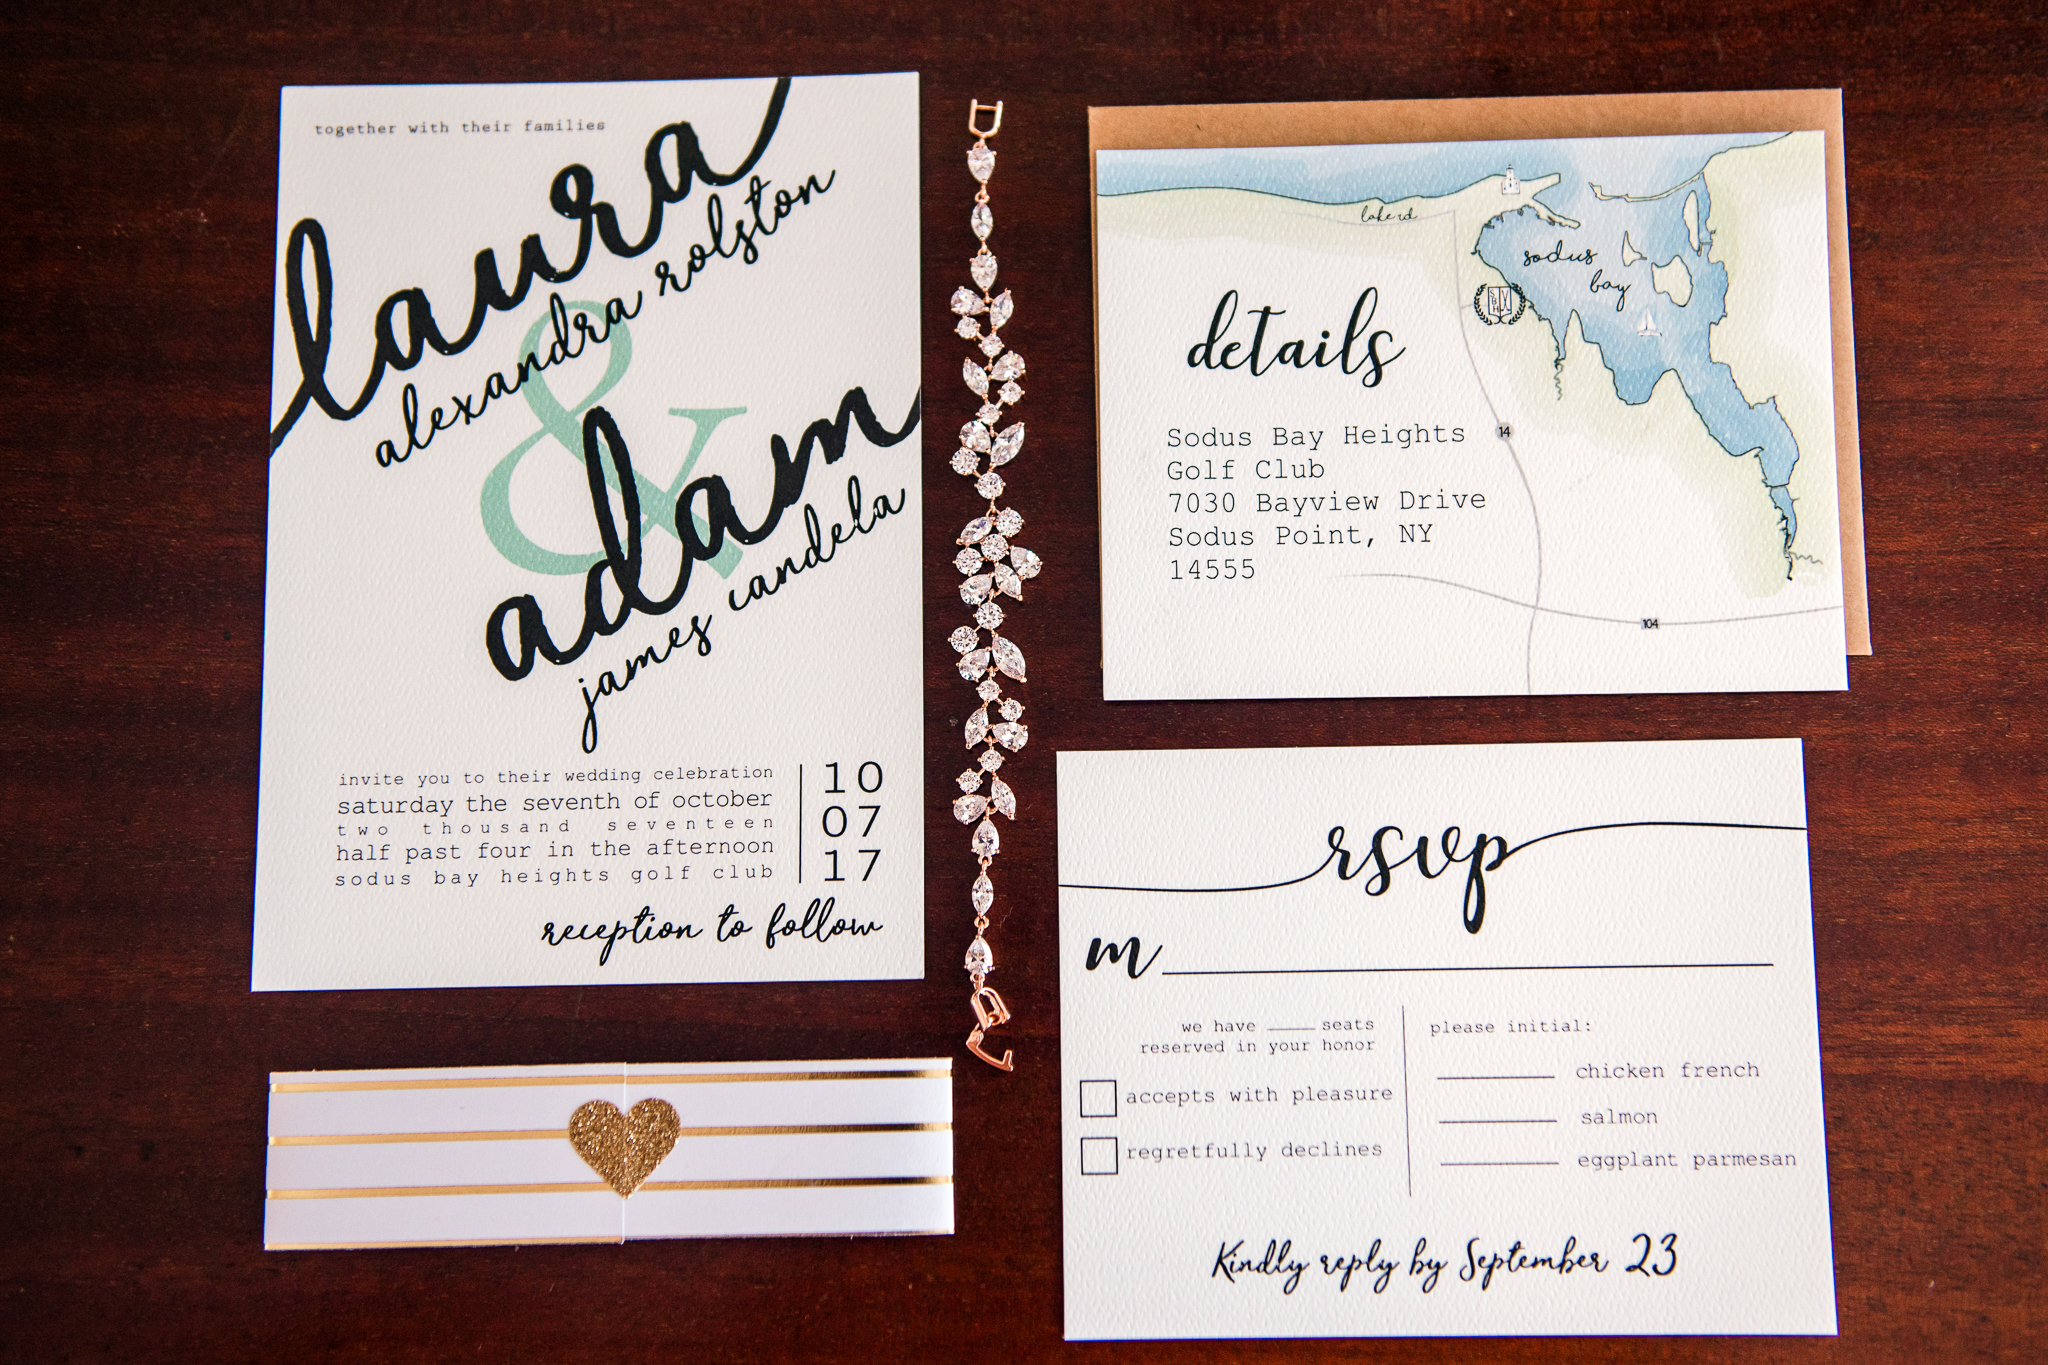 together with their families
laura
alexandra rolston
&
adam
james candela
invite you to their wedding celebration
saturday the seventh of october
two thousand seventeen
half past four in the afternoon
sodus bay heights golf club
10
07
17
reception to follow
lake rd
sodus
bay
SBH
details
Sodus Bay Heights
Golf Club
7030 Bayview Drive
Sodus Point, NY
14555
14
104
rsvp
m
we have ____ seats
reserved in your honor
accepts with pleasure
regretfully declines
please initial:
chicken french
salmon
eggplant parmesan
Kindly reply by September 23